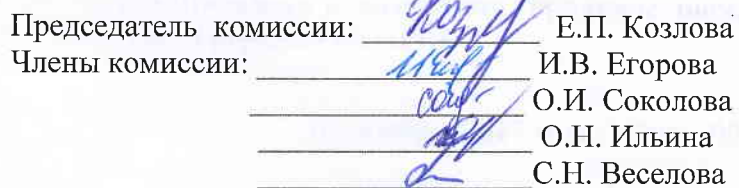 Председатель комиссии: Е.П. Козлова
Члены комиссии: И.В. Егорова
О.И. Соколова
О.Н. Ильина
С.Н. Веселова